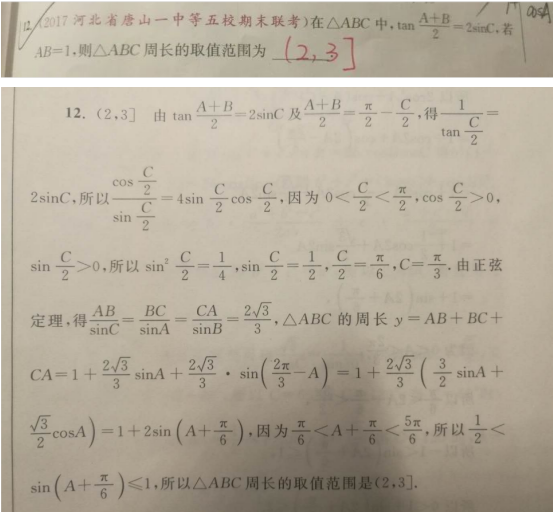 12. (2017 河北省唐山一中等五校期末联考)在△ABC 中, tan (A+B)/2 = 2sinC, 若
AB=1, 则△ABC 周长的取值范围为 (2,3]
12. (2,3] 由 tan (A+B)/2 = 2sinC 及 (A+B)/2 = π/2 − C/2, 得 1/(tan C/2) =
2sinC, 所以 (cos C/2)/(sin C/2) = 4sin C/2 cos C/2, 因为 0 < C/2 < π/2, cos C/2 > 0,
sin C/2 > 0, 所以 sin² C/2 = 1/4, sin C/2 = 1/2, C/2 = π/6, C = π/3. 由正弦
定理, 得 AB/sinC = BC/sinA = CA/sinB = 2√3/3, △ABC 的周长 y = AB + BC +
CA = 1 + 2√3/3 sinA + 2√3/3 · sin(2π/3 − A) = 1 + 2√3/3 (3/2 sinA +
√3/2 cosA) = 1 + 2sin(A + π/6), 因为 π/6 < A + π/6 < 5π/6, 所以 1/2 <
sin(A + π/6) ≤ 1, 所以△ABC 周长的取值范围是(2,3].